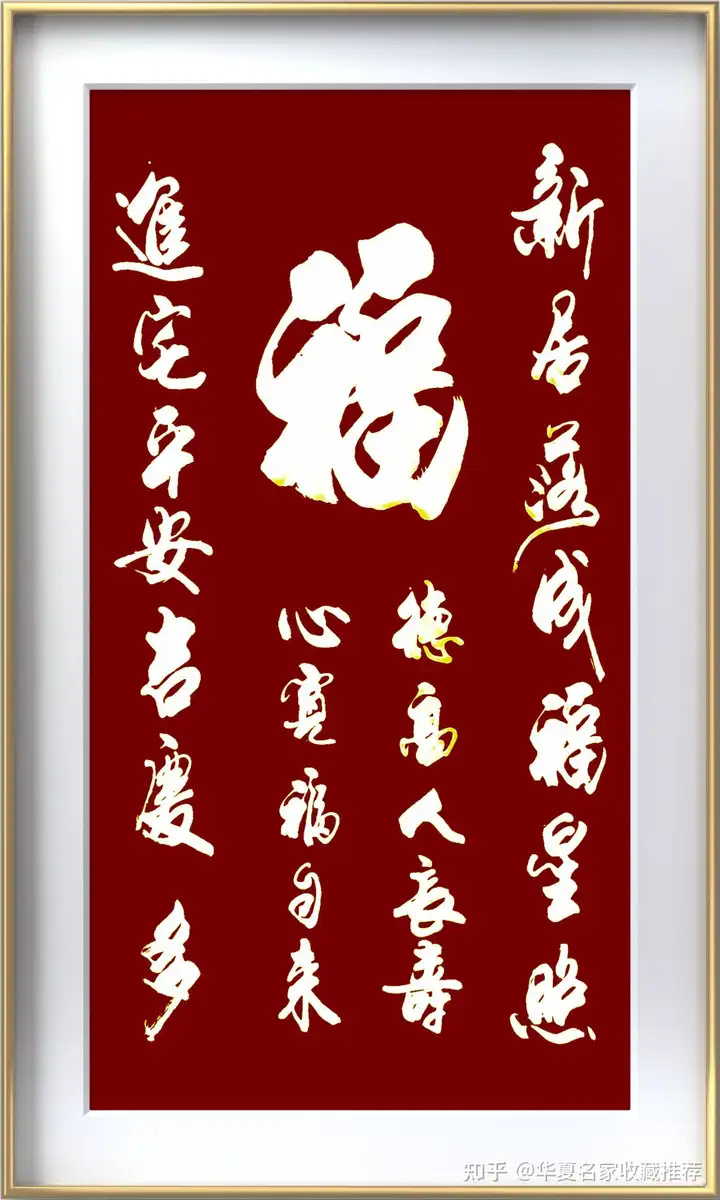 新居落成福星照
福
德高人長壽
心寬福自来
進宅平安吉慶多
知乎 @华夏名家收藏推荐